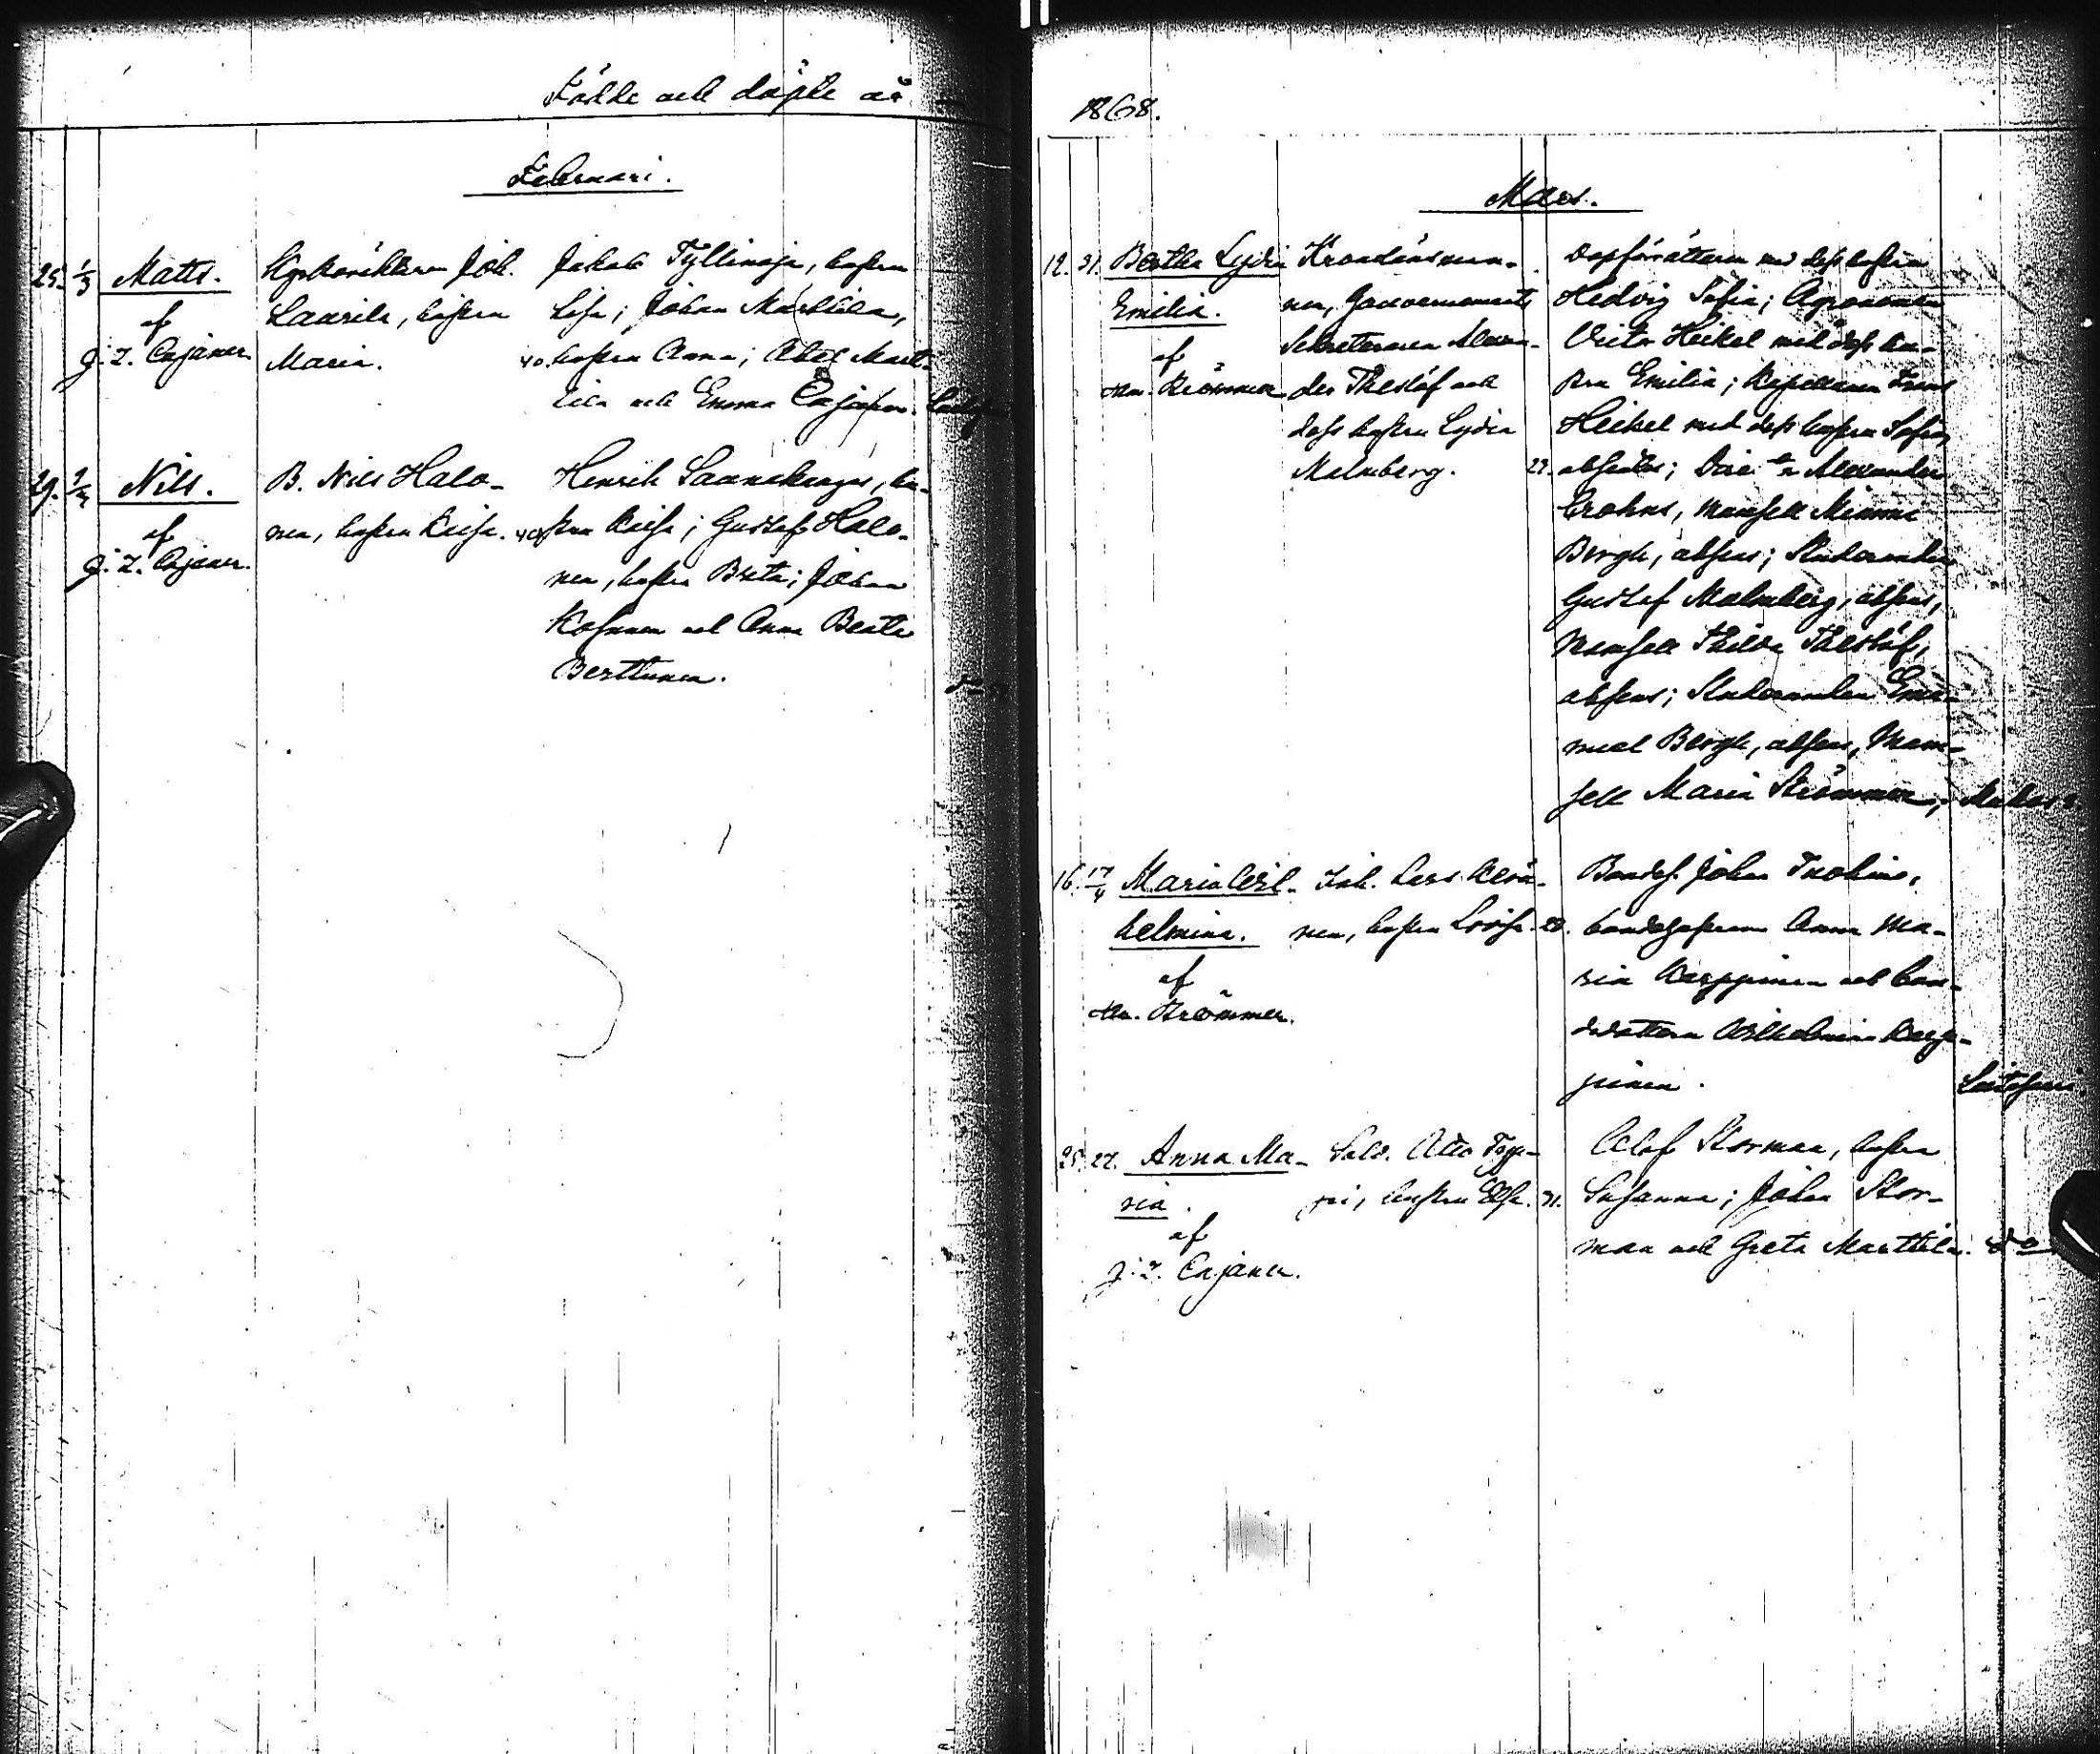 Födde och döpte år
1868.
Februari.
25. 1/3 Matts.
af
J. Z. Cajaner
Joh.
Laurila, hustru
Maria.
40.
Jakob Tyllinoja, hustru
Lisa; Johan Marttila,
hustru Anna; Abel Mart-
tila och Emma Cajaner.
29. Nils.
af
J. Z. Cajaner.
B. Nils Halo-
nen, hustru Kaisa.
Henrik hu-
stru Kaisa; Gustaf Halo-
nen, hustru Brita; Johan
och Anna Beata
Berttunen.
Mars.
12. 31. Bertha Lydia
Emilia.
af
Strömmer
Kronolänsman-
nen, Gouvernements
Sekreteraren Alexan-
der Thesløf och
dess hustru Lydia
Malmberg.
29.
Dopförrättaren med dess hustru
Hedvig Sofia; Agronomen
Victor Heikel med dess hu-
stru Emilia; Kapellanen Frans
Heikel med dess hustru Sofia,
absentes; Alexander
Crohns, Mamsell Mimmi
Bergh, absens; Studeranden
Gustaf Malmberg, absens,
Mamsell Thilda Thesløf,
absens; Studeranden Ema-
nuel Bergh, absens, Mam-
sell Maria Strömmer;
16. 17/4 Maria Wil-
helmina.
af
Strömmer.
Inh. Lars
nen, hustru Lovisa. 28.
Bondes. Johan Tuohino,
bondehustrun Anna Ma-
ria Karppinen och bon-
dedottern Wilhelmina Karp-
pinen.
25. 27. Anna Ma-
ria.
af
J. Z. Cajaner.
Sold. Otto
hustru Elsa. 31.
Olof Storman, hustru
Susanna; Johan Stor-
man och Greta Marttila. do